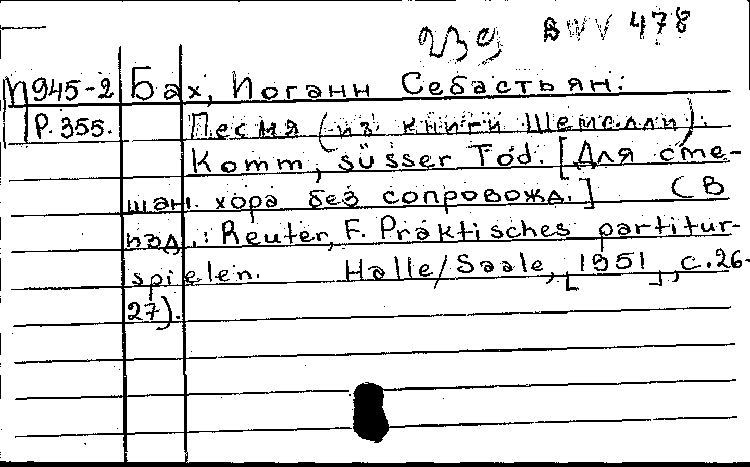 239 BWV 478
П945-2 Бах, Иоганн Себастьян:
Р.355. Песня (из книги Шемелли):
Komm, süsser Tod. [Для сме-
шан. хора без сопровожд.] (В
изд.: Reuter, F. Praktisches partitur-
spielen. Halle/Saale, [1951], с.26-
27).